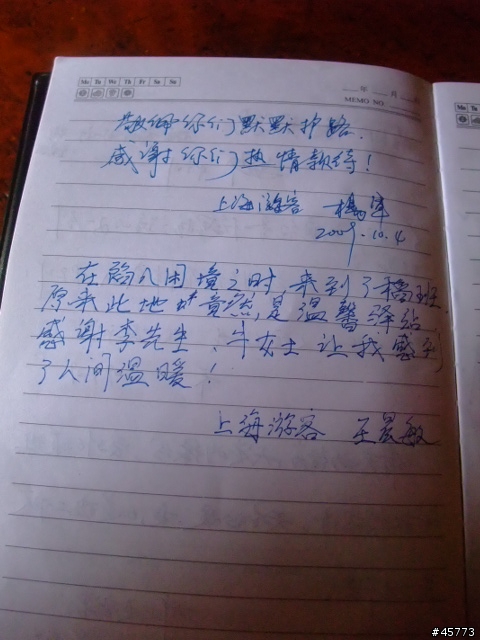 Mo Tu We Th Fr Sa Su
年 月
MEMO NO.
Mo Tu
敬佩你们默默护路.
感谢你们热情款待!
上海游客 杨军
2009.10.4
在陷入困境之时,来到了桥班.
原来此地竟然是温馨驿站
感谢李先生、牛女士让我感到
了人间温暖!
上海游客 王晨敏
#45773